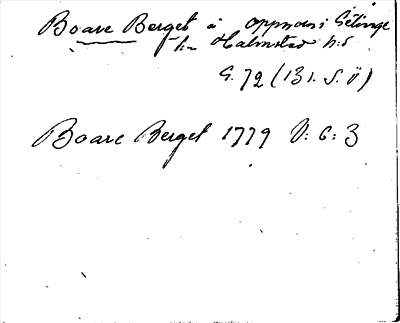 Boare Berget å oppmansi Götinge
h-n Halmstad h:s
G. 72 (131. S. Ö)
Boare Berget 1779 V: 6: 3